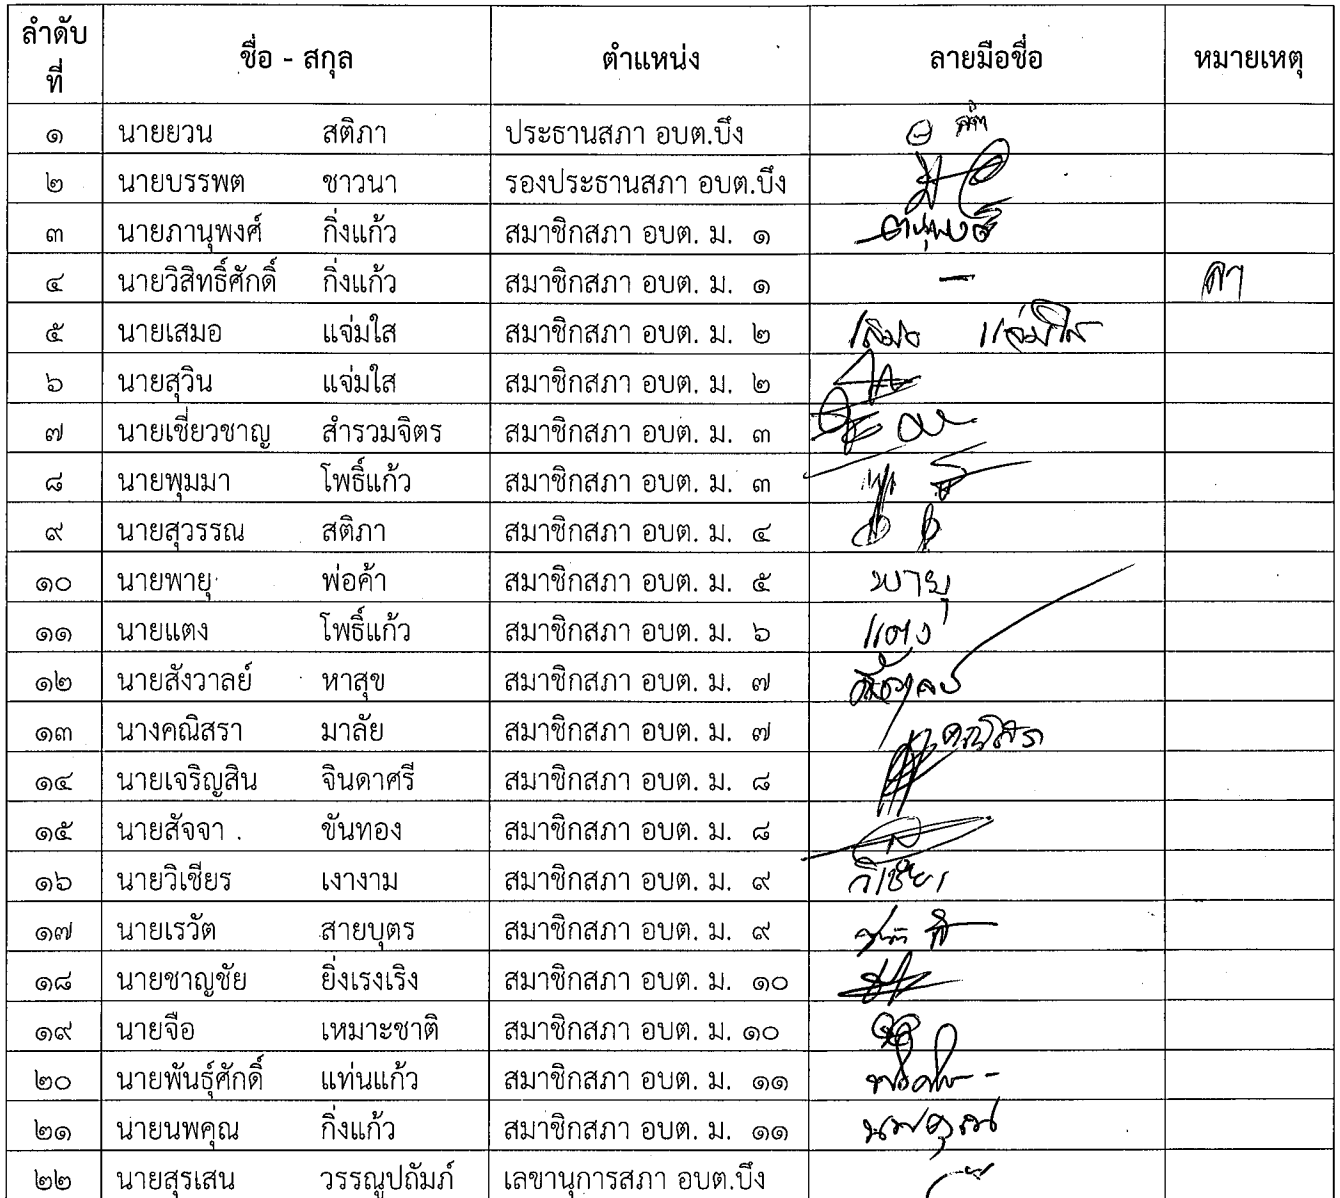 ลำดับที่ ชื่อ - สกุล ตำแหน่ง ลายมือชื่อ หมายเหตุ
๑ นายยวน สติภา ประธานสภา อบต.บึง
๒ นายบรรพต ชาวนา รองประธานสภา อบต.บึง
๓ นายภานุพงศ์ กิ่งแก้ว สมาชิกสภา อบต. ม. ๑
๔ นายวิสิทธิ์ศักดิ์ กิ่งแก้ว สมาชิกสภา อบต. ม. ๑ -
๕ นายเสมอ แจ่มใส สมาชิกสภา อบต. ม. ๒ เสมอ แจ่มใส
๖ นายสุวิน แจ่มใส สมาชิกสภา อบต. ม. ๒
๗ นายเชี่ยวชาญ สำรวมจิตร สมาชิกสภา อบต. ม. ๓
๘ นายพุมมา โพธิ์แก้ว สมาชิกสภา อบต. ม. ๓
๙ นายสุวรรณ สติภา สมาชิกสภา อบต. ม. ๔
๑๐ นายพายุ พ่อค้า สมาชิกสภา อบต. ม. ๕ พายุ
๑๑ นายแตง โพธิ์แก้ว สมาชิกสภา อบต. ม. ๖ แตง
๑๒ นายสังวาลย์ หาสุข สมาชิกสภา อบต. ม. ๗
๑๓ นางคณิสรา มาลัย สมาชิกสภา อบต. ม. ๗ คณิสรา
๑๔ นายเจริญสิน จินดาศรี สมาชิกสภา อบต. ม. ๘
๑๕ นายสัจจา ขันทอง สมาชิกสภา อบต. ม. ๘
๑๖ นายวิเชียร เงางาม สมาชิกสภา อบต. ม. ๙ วิเชียร
๑๗ นายเรวัต สายบุตร สมาชิกสภา อบต. ม. ๙
๑๘ นายชาญชัย ยิ่งเรงเริง สมาชิกสภา อบต. ม. ๑๐
๑๙ นายจือ เหมาะชาติ สมาชิกสภา อบต. ม. ๑๐
๒๐ นายพันธุ์ศักดิ์ แท่นแก้ว สมาชิกสภา อบต. ม. ๑๑
๒๑ นายนพคุณ กิ่งแก้ว สมาชิกสภา อบต. ม. ๑๑ นพคุณ
๒๒ นายสุรเสน วรรณูปถัมภ์ เลขานุการสภา อบต.บึง